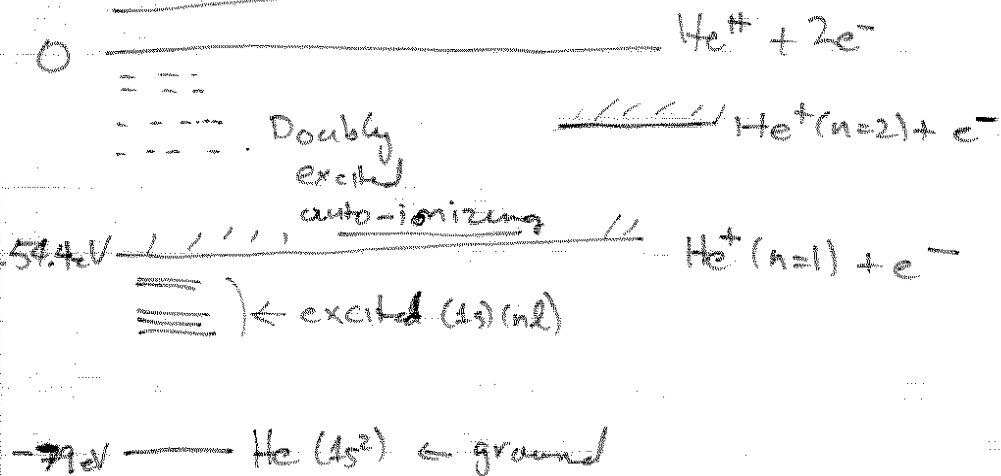 0 He⁺⁺ + 2e⁻
Doubly He⁺(n=2) + e⁻
excited
auto-ionizing
-54.4eV He⁺(n=1) + e⁻
← excited (1s)(nl)
-79eV He (1s²) ← ground